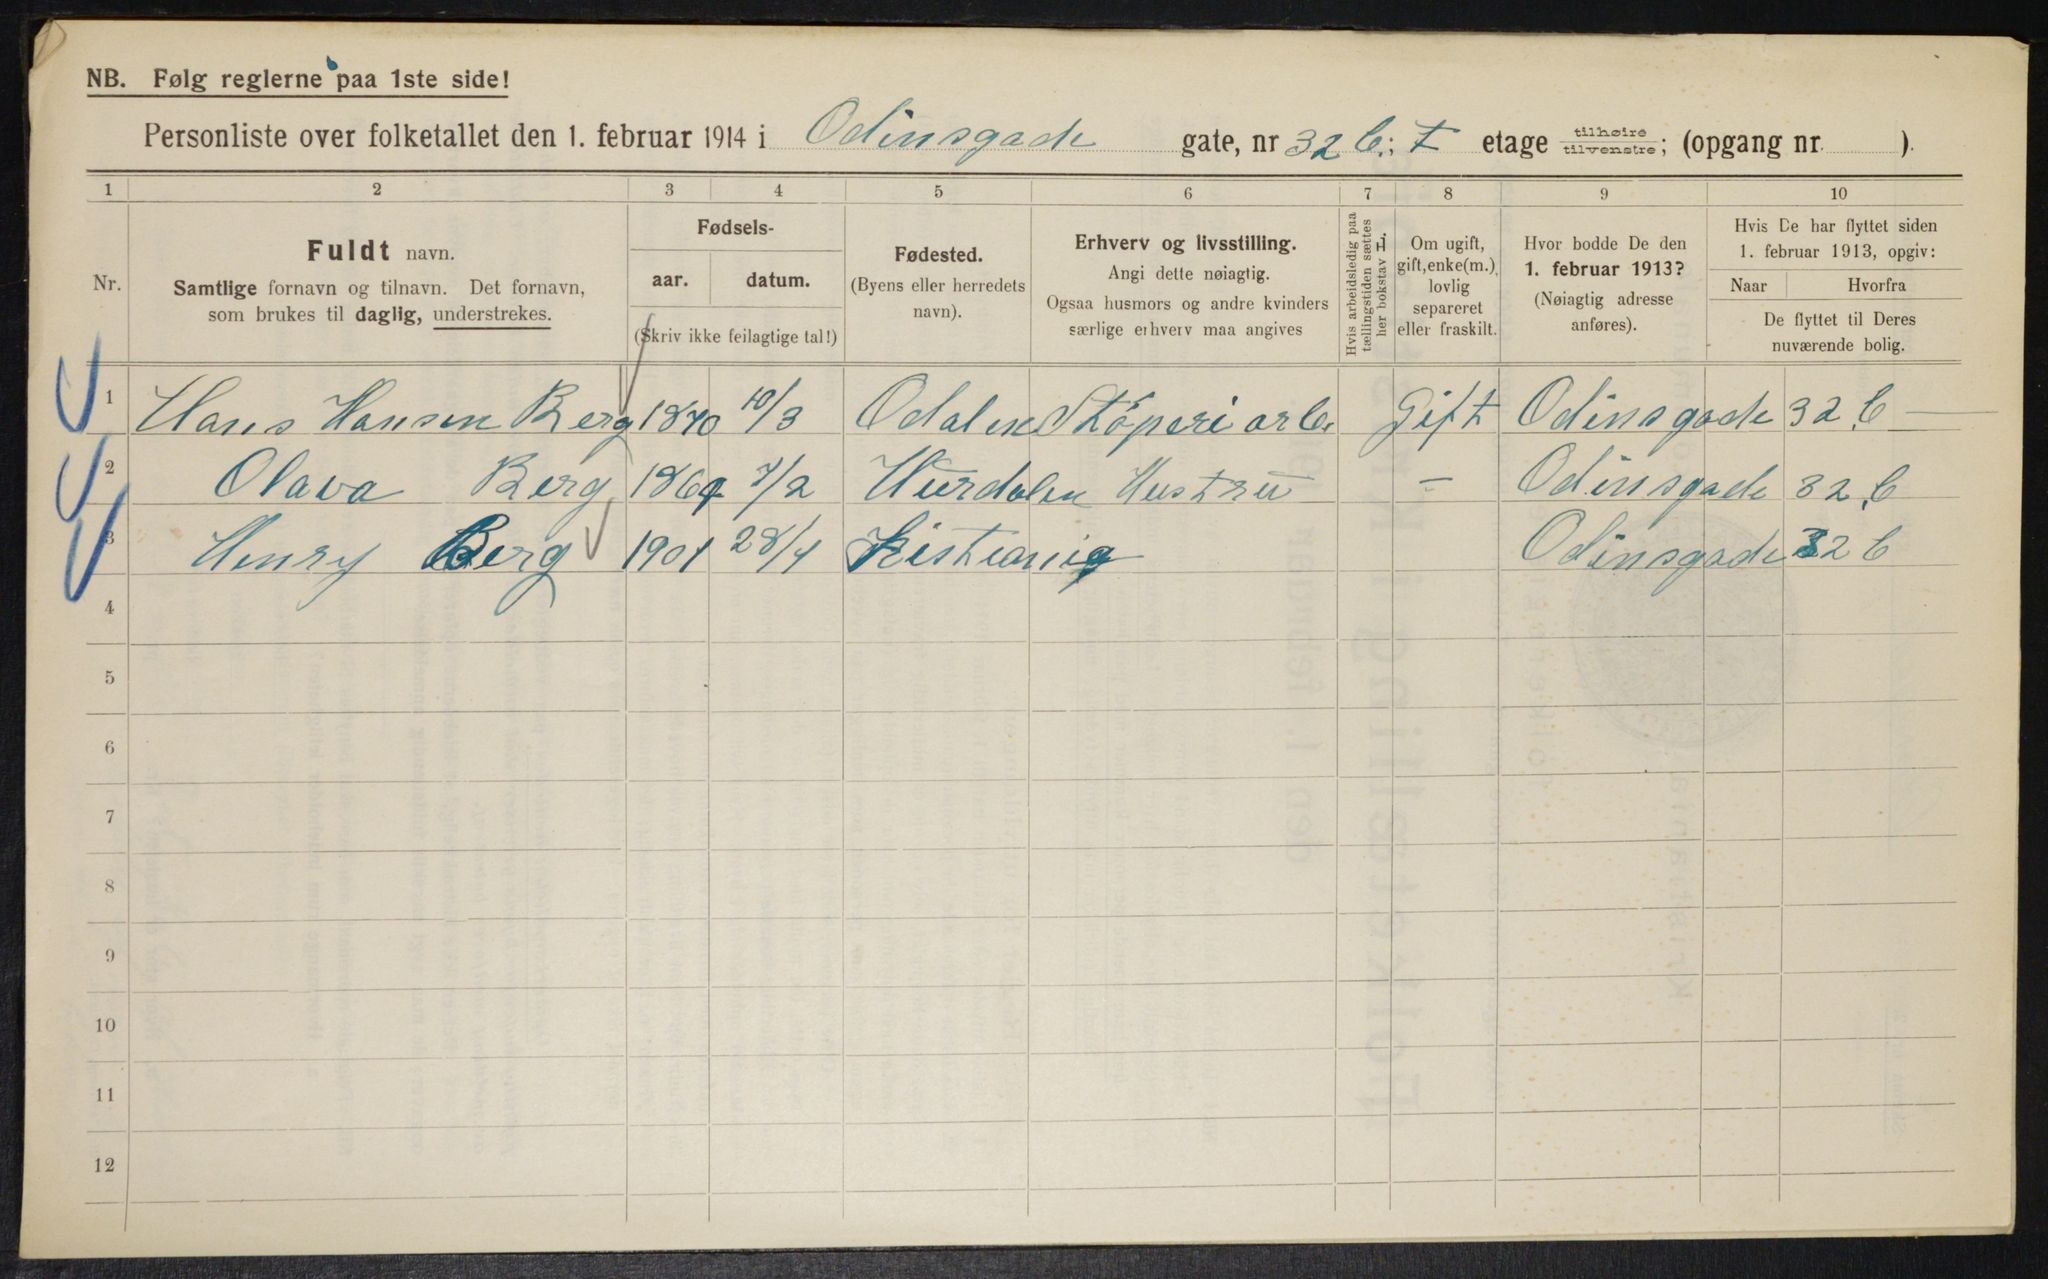 NB. Følg reglerne paa 1ste side!
Personliste over folketallet den 1. februar 1914 i Odinsgade gate, nr 32 b.; I etage tilhøire/tilvenstre; (opgang nr. ).
1 2 3 4 5 6 7 8 9 10
Nr.
Fuldt navn.
Samtlige fornavn og tilnavn. Det fornavn,
som brukes til daglig, understrekes.
Fødsels-
aar. datum.
(Skriv ikke feilagtige tal!)
Fødested.
(Byens eller herredets
navn).
Erhverv og livsstilling.
Angi dette nøiagtig.
Ogsaa husmors og andre kvinders
særlige erhverv maa angives
Hvis arbeidsledig paa
tællingstiden sættes
her bokstav L.
Om ugift,
gift, enke(m.),
lovlig
separeret
eller fraskilt.
Hvor bodde De den
1. februar 1913?
(Nøiagtig adresse
anføres).
Hvis De har flyttet siden
1. februar 1913, opgiv:
Naar Hvorfra
De flyttet til Deres
nuværende bolig.
1 Hans Hansen Berg 1870 10/3 Odalen Støperi arb. Gift Odinsgade 32 b —
2 Olava Berg 1869 7/2 Hurdalen Hustru - Odinsgade 32 b
3 Henry Berg 1901 28/4 Kristiania Odinsgade 32 b
4
5
6
7
8
9
10
11
12